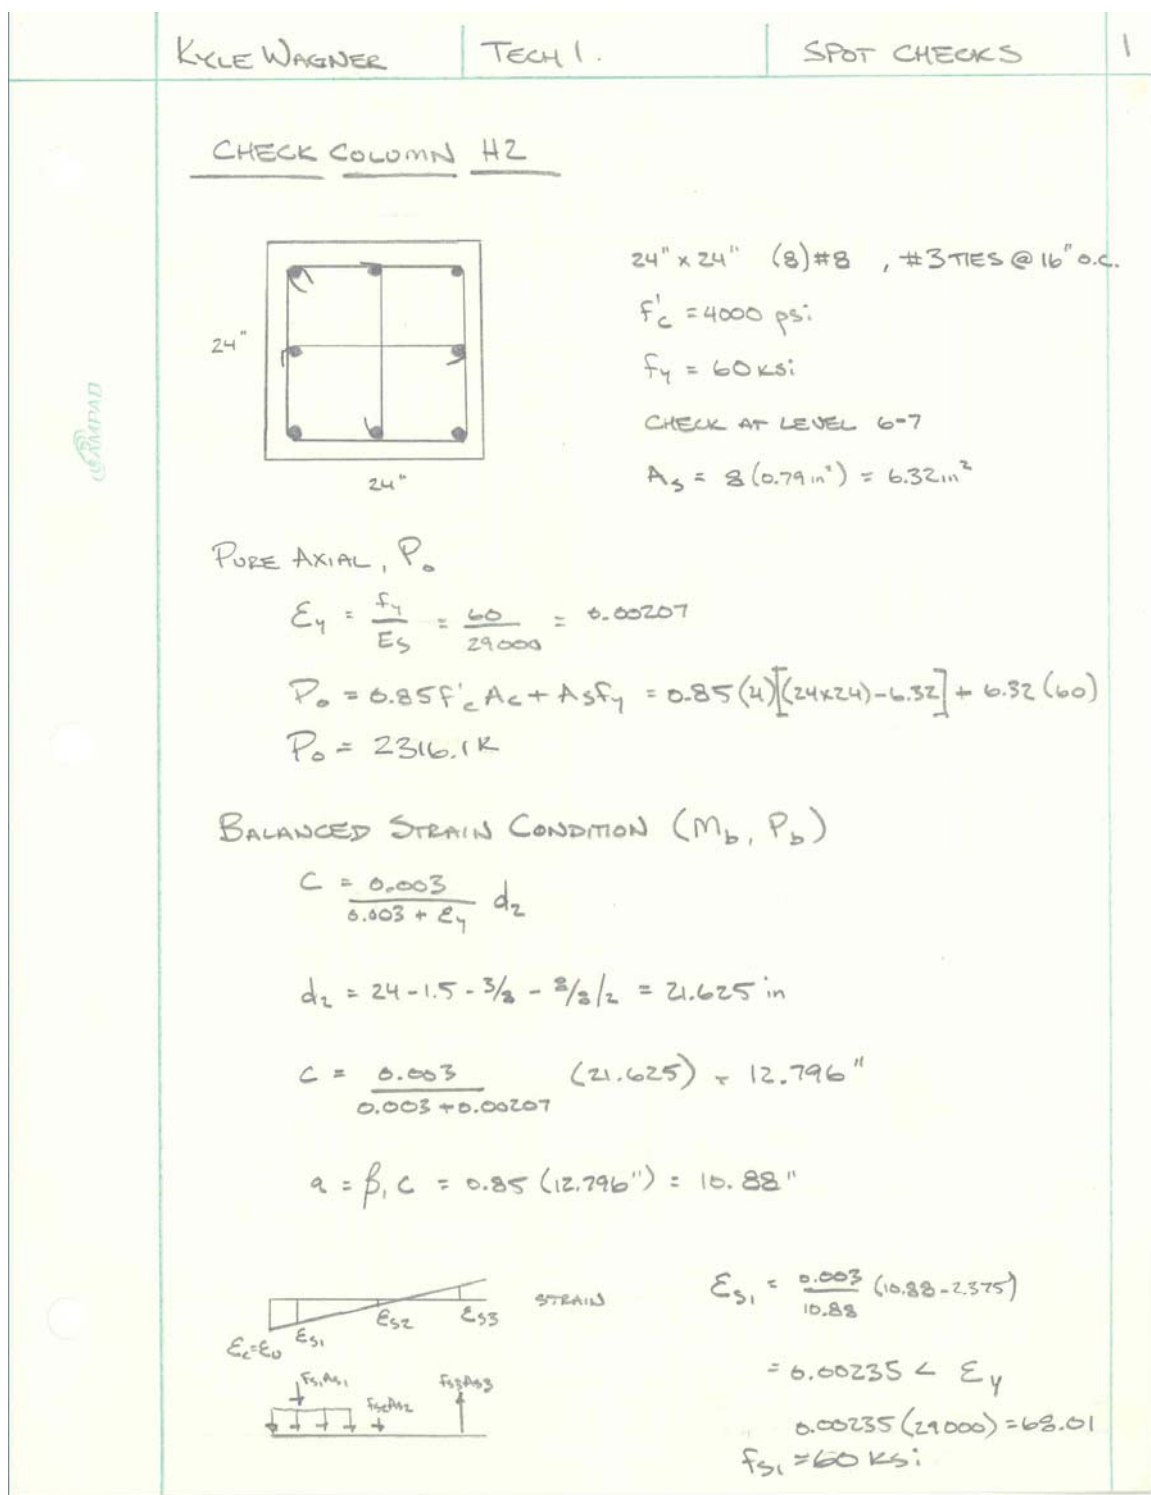 KYLE WAGNER TECH 1. SPOT CHECKS 1
CHECK COLUMN H2
24" x 24" (8) #8 , #3 TIES @ 16" o.c.
f'c = 4000 psi
24"
fy = 60 ksi
CHECK AT LEVEL 6-7
24"
As = 8 (0.79 in²) = 6.32 in²
AMPAD
PURE AXIAL, Po
εy = fy/Es = 60/29000 = 0.00207
Po = 0.85 f'c Ac + As fy = 0.85 (4)[(24x24) - 6.32] + 6.32 (60)
Po = 2316.1 K
BALANCED STRAIN CONDITION (Mb, Pb)
C = 0.003/(0.003 + εy) d2
d2 = 24 - 1.5 - 3/8 - 8/8/2 = 21.625 in
C = 0.003/(0.003 + 0.00207) (21.625) = 12.796"
a = β1 C = 0.85 (12.796") = 10.88"
STRAIN
εc=εu εs1 εs2 εs3
fs1As1 fs2As2 fs3As3
εs1 = 0.003/10.88 (10.88 - 2.375)
= 0.00235 < εy
0.00235 (29000) = 68.01
fs1 = 60 ksi